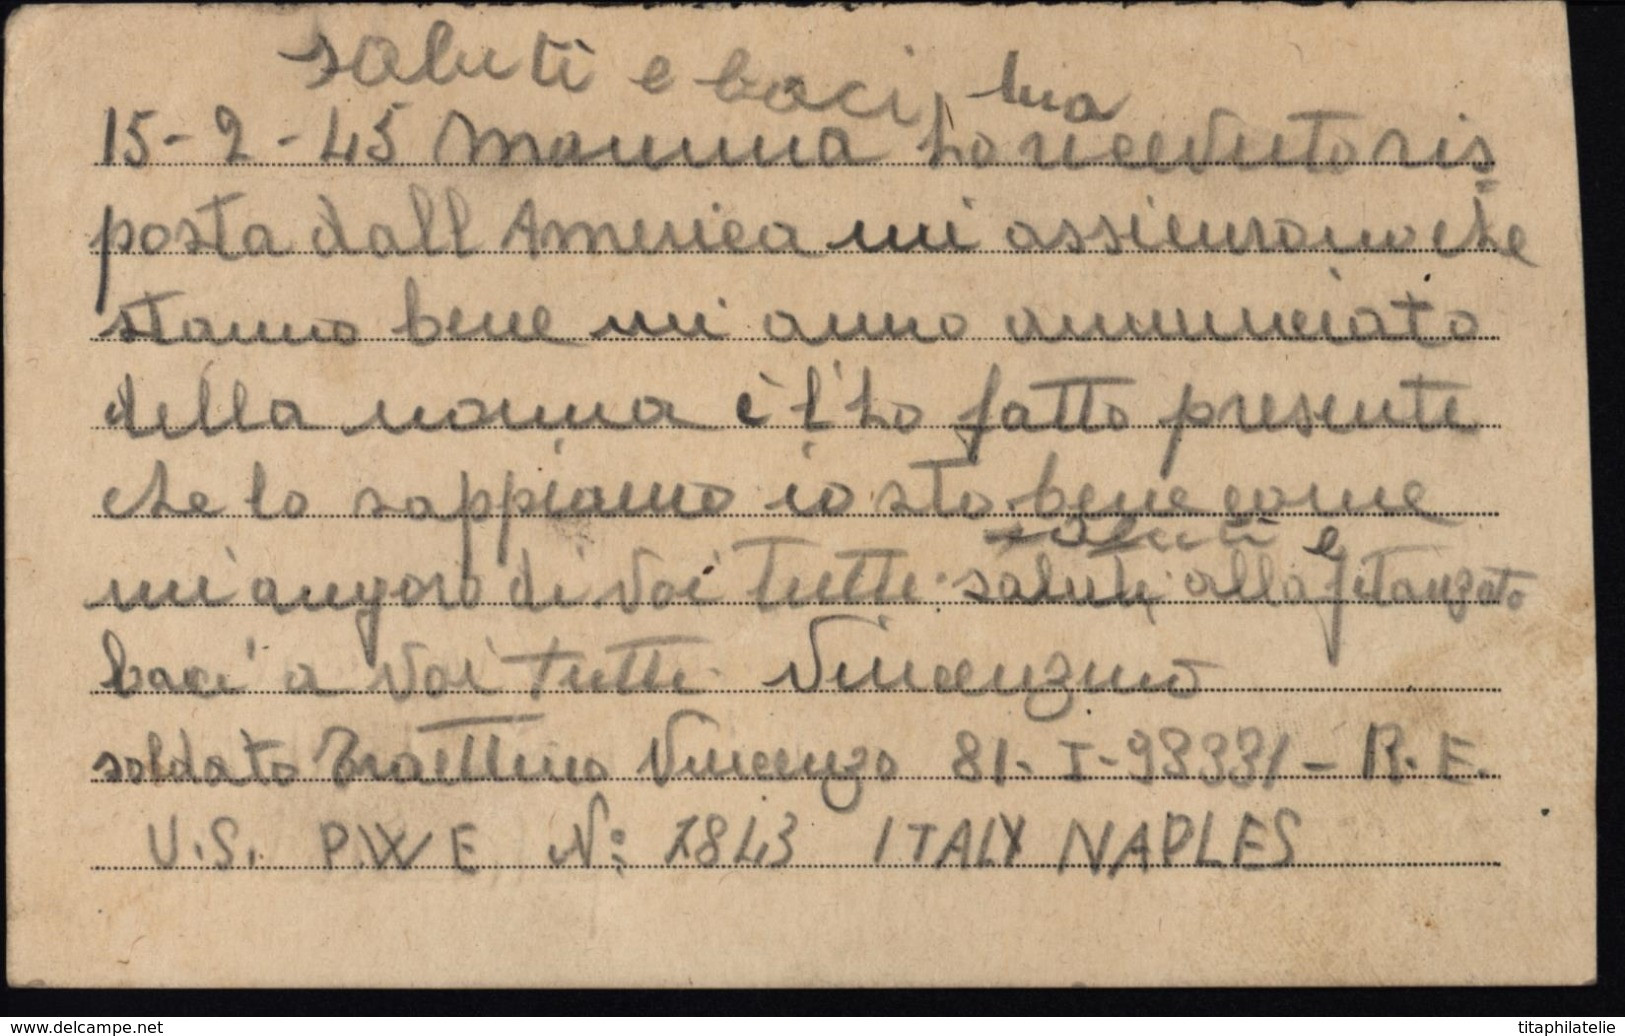 saluti e baci, tua
15-2-45 Mamma ho ricevuto ris
posta dall America mi assicurano che
stanno bene mi anno annunciato
della nonna e l'ho fatto presente
che lo sappiamo io sto bene come
saluti e
mi anguro di voi tutti. saluti alla fitanzata
baci a voi tutti. Vincenzino
soldato Vincenzo 81-I-98331-R.E.
U.S. P.W E N: 7843 ITALY NAPLES
titaphilatelie
www.delcampe.net